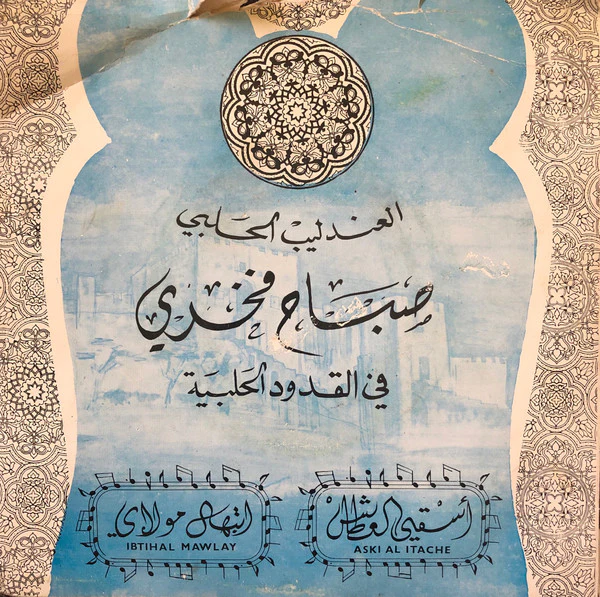 العندليب الحلبي
صباح فخري
في القدود الحلبية
أسقي العطاش
ASKI AL ITACHE
ابتهال مولاي
IBTIHAL MAWLAY